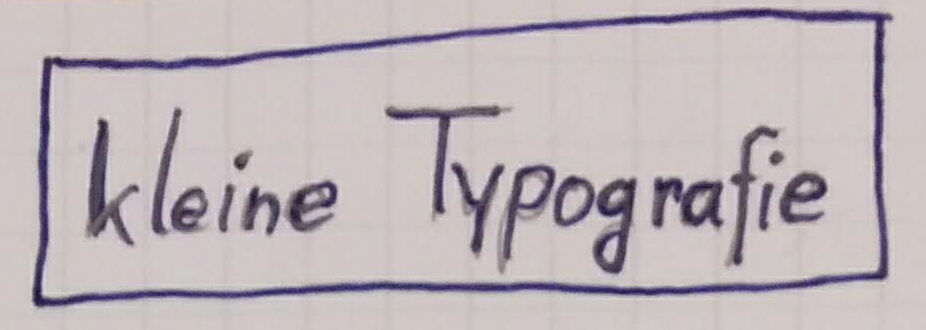 kleine Typografie